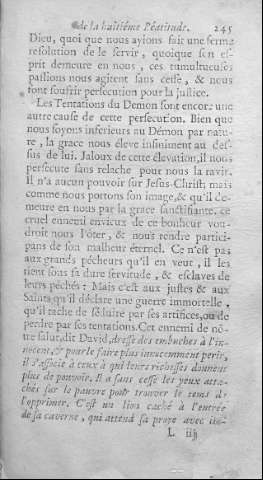 de la huitiéme Béatitude. 245
Dieu, quoi que nous ayions fait une ferme
resolution de le servir, quoique son es-
prit demeure en nous, ces tumultueuses
passions nous agitent sans cesse, & nous
font souffrir persecution pour la justice.
Les Tentations du Demon sont encore une
autre cause de cette persecution. Bien que
nous soyons inferieurs au Démon par natu-
re, la grace nous éleve infiniment au des-
sus de lui. Jaloux de cette élevation, il nous
persecute sans relache pour nous la ravir.
Il n'a aucun pouvoir sur Jesus-Christ; mais
comme nous portons son image, & qu'il de-
meure en nous par la grace sanctifiante, ce
cruel ennemi envieux de ce bonheur vou-
droit nous l'ôter, & nous rendre partici-
pans de son malheur éternel. Ce n'est pas
aux grands pécheurs qu'il en veut, il les
tient sous sa dure servitude, & esclaves de
leurs péchés: Mais c'est aux justes & aux
Saints qu'il déclare une guerre immortelle,
qu'il tache de séduire par ses artifices, ou de
perdre par ses tentations. Cet ennemi de nô-
tre salut, dit David, dresse des embuches à l'in-
nocent, & pour le faire plus surement perir,
il s'associe à ceux à qui leurs richesses donnent
plus de pouvoir. Il a sans cesse les yeux atta-
chés sur le pauvre pour trouver le tems de
l'opprimer. C'est un lion caché à l'entrée
de sa caverne, qui attend sa proye avec
L iij